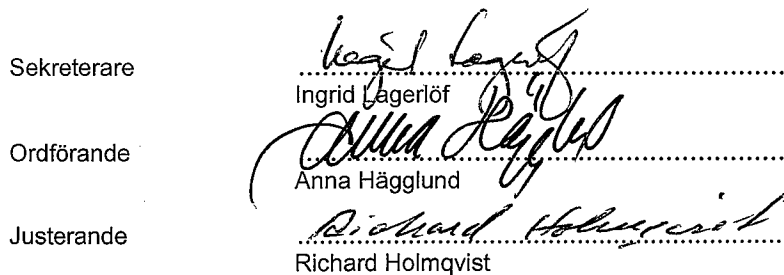 Sekreterare
Ingrid Lagerlöf
Ingrid Lagerlöf
Ordförande
Anna Hägglund
Anna Hägglund
Justerande
Richard Holmqvist
Richard Holmqvist